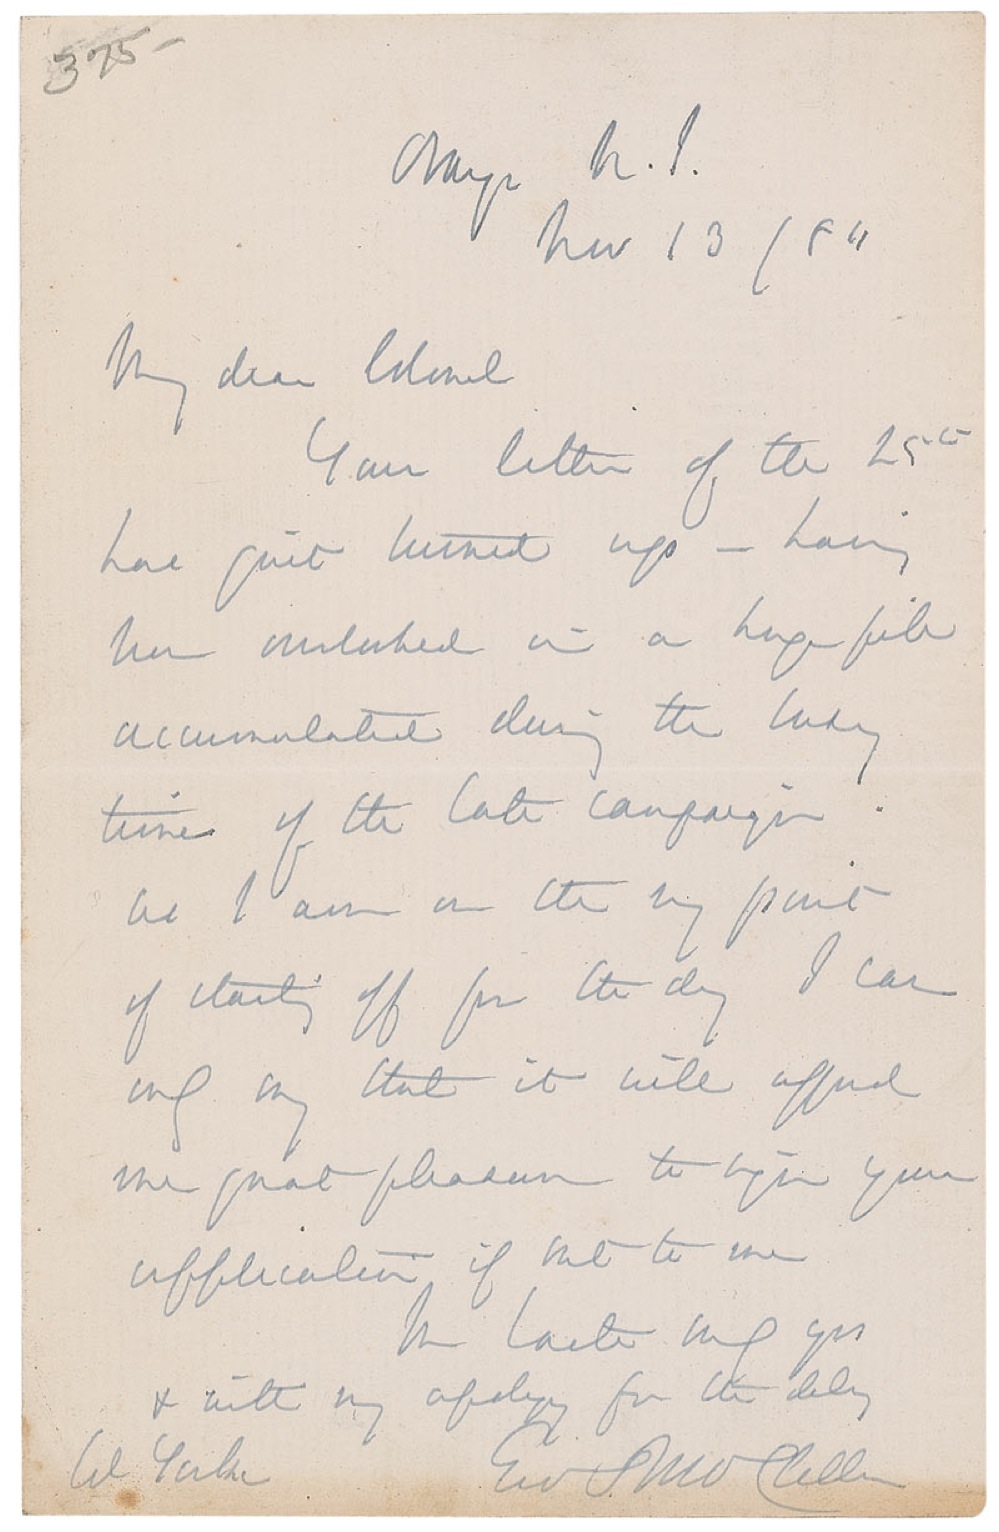 375-
Orange N.J.
Nov 13 /84
My dear Colonel
Your letter of the 25th
has just turned up - having
been overlooked in a huge pile
accumulated during the busy
time of the late campaign.
As I am on the very point
of starting off for the day I can
only say that it will afford
me great pleasure to sign your
application if sent to me
In haste truly yrs
& with my apology for the delay
Geo B McClellan
Col Yorke